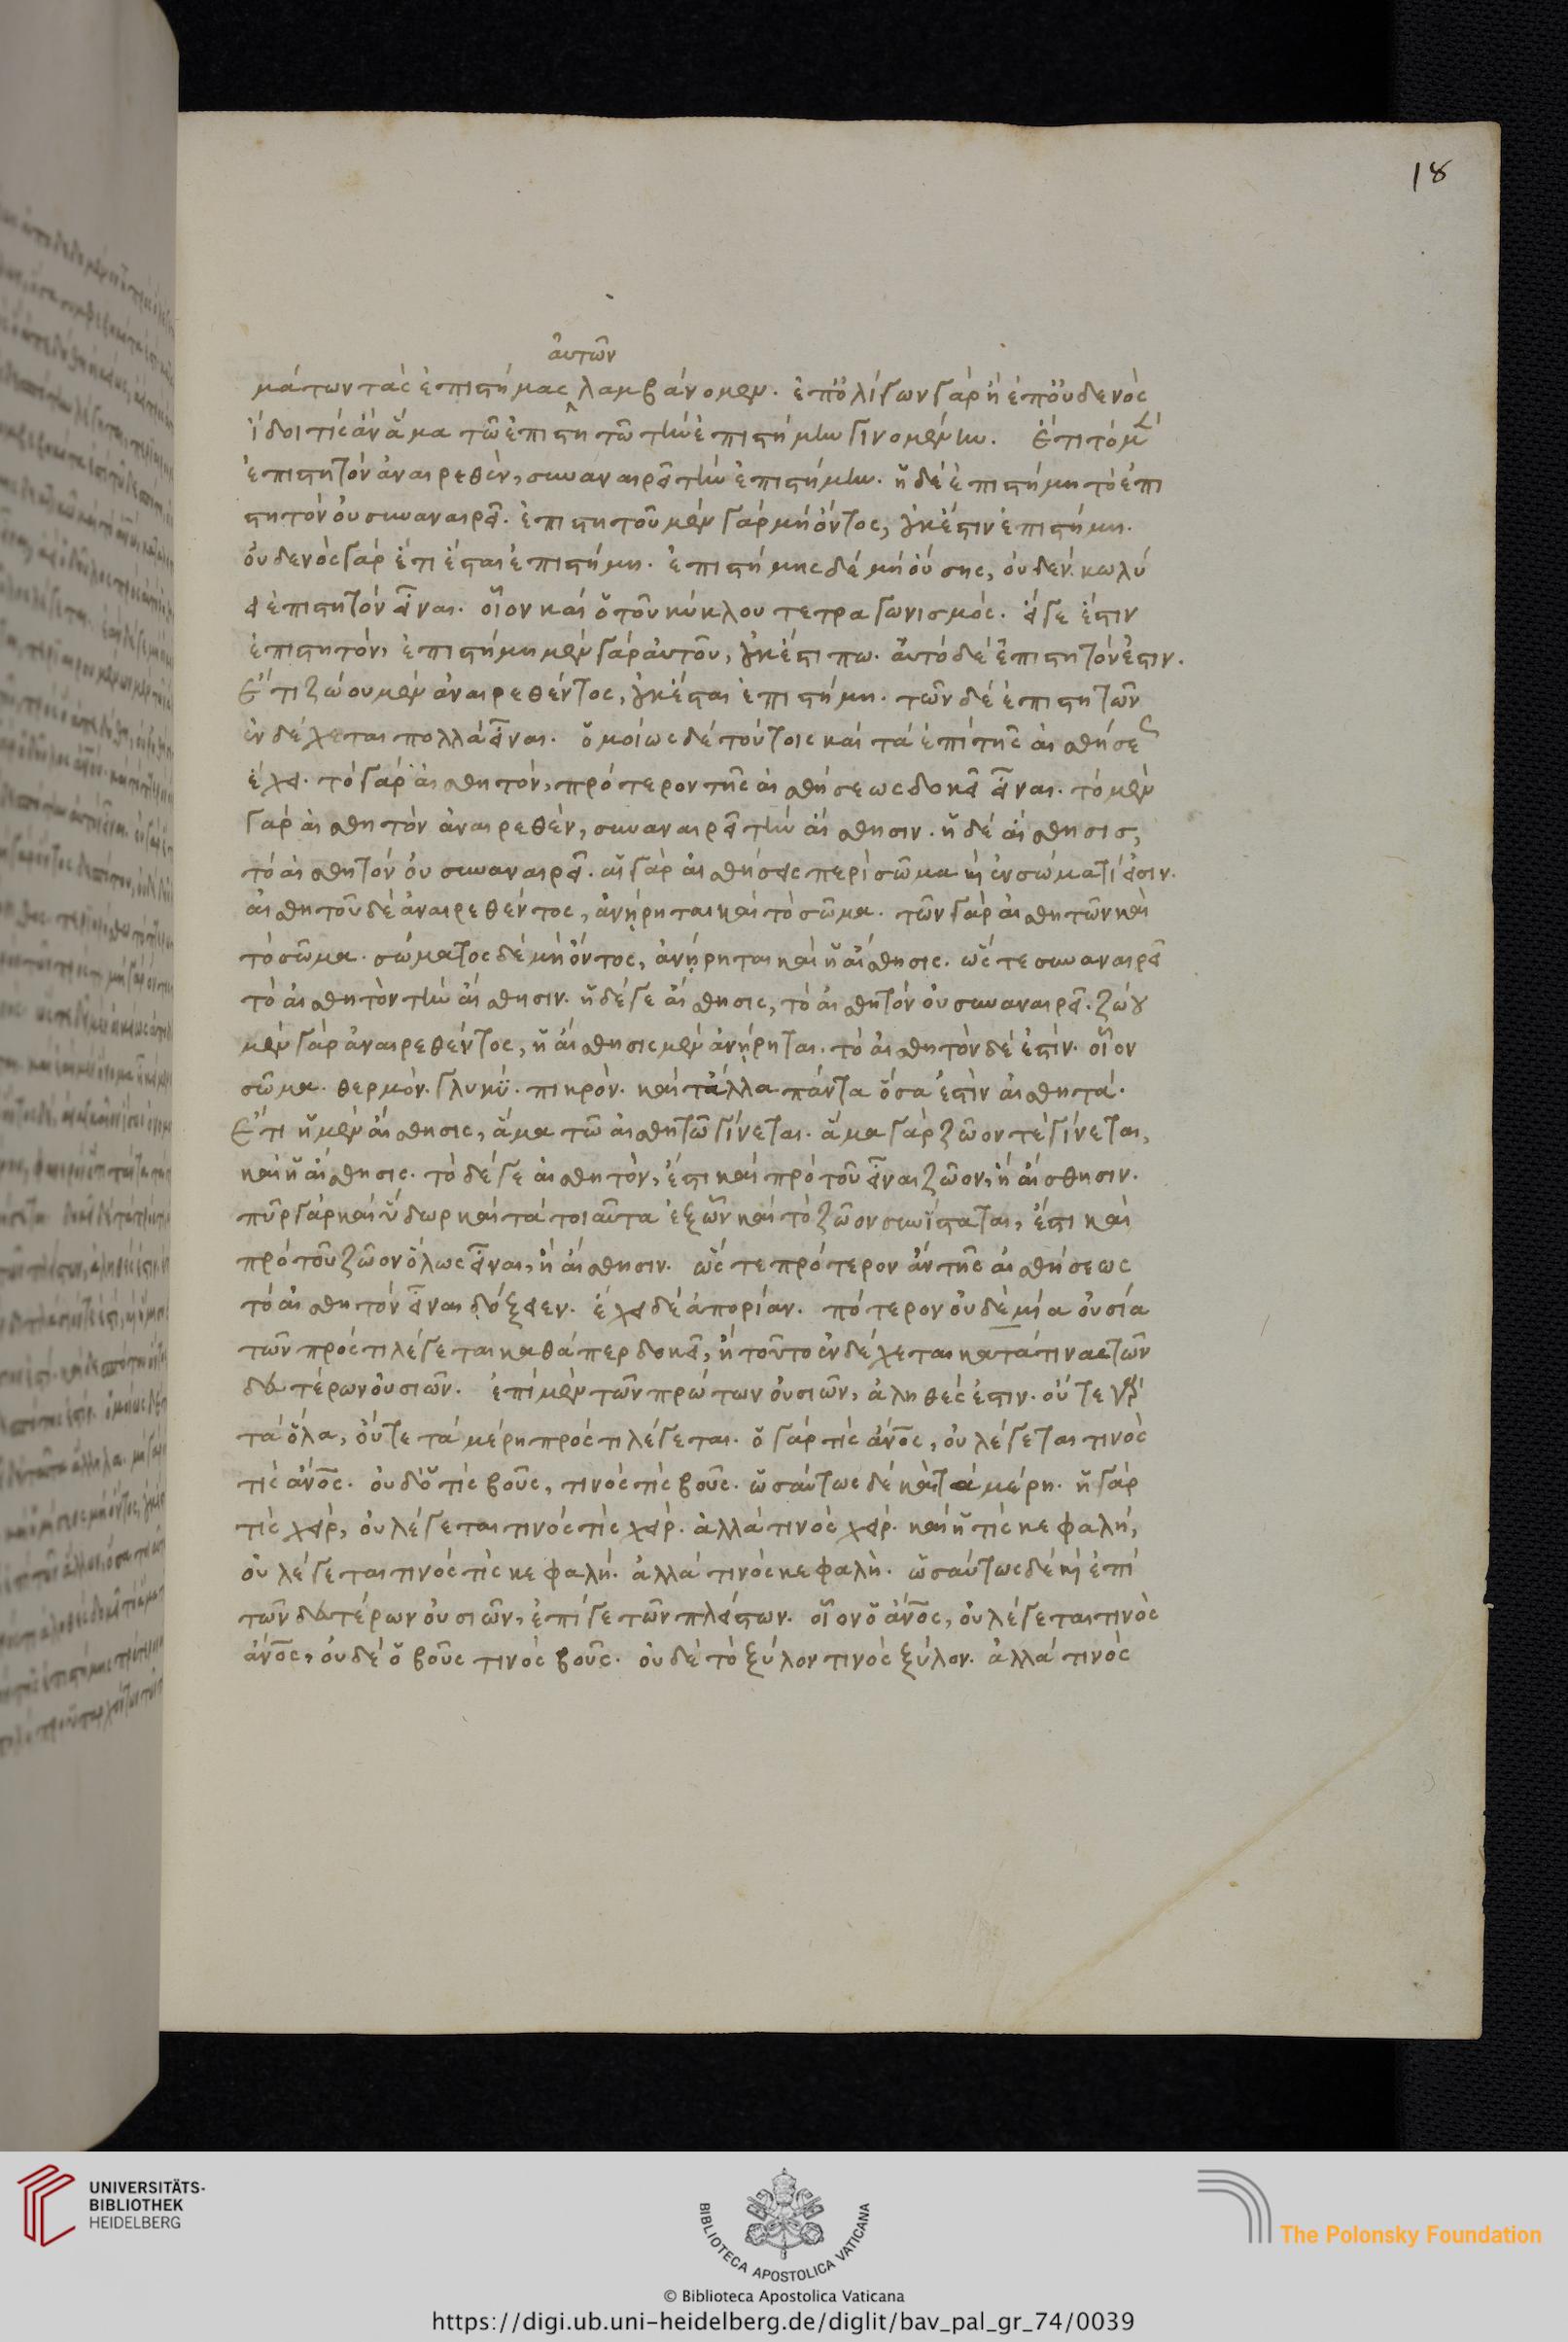 18
αὐτῶν
μάτων τὰς ἐπιστήμας λαμβάνομεν. ἐπ' ὀλίγων γὰρ ἢ ἐπ' οὐδενὸς
ἴδοι τίς ἂν ἅμα τῶ ἐπιστητῶ τὴν ἐπιστήμην γινομένην. Ἔτι τὸ μὲν
ἐπιστητὸν ἀναιρεθὲν, συναναιρεῖ τὴν ἐπιστήμην. ἡ δὲ ἐπιστήμη τὸ ἐπι
στητὸν οὐ συναναιρεῖ. ἐπιστητοῦ μὲν γὰρ μὴ ὄντος, οὐκ ἔστιν ἐπιστήμη.
οὐδενὸς γὰρ ἔτι ἔσται ἐπιστήμη. ἐπιστήμης δὲ μὴ οὔσης, οὐδὲν κωλύ
ει ἐπιστητὸν εἶναι. οἷον καὶ ὁ τοῦ κύκλου τετραγωνισμός. εἴγε ἔστιν
ἐπιστητὸν, ἐπιστήμη μὲν γὰρ αὐτοῦ, οὐκ ἔστι πω. αὐτὸ δὲ ἐπιστητόν ἐστιν.
Ἔτι ζώου μὲν ἀναιρεθέντος, οὐκ ἔσται ἐπιστήμη. τῶν δὲ ἐπιστητῶν
ἐνδέχεται πολλὰ εἶναι. ὁμοίως δὲ τούτοις καὶ τὰ ἐπὶ τῆς αἰσθήσεως
ἔχει. τὸ γὰρ αἰσθητὸν, πρότερον τῆς αἰσθήσεως δοκεῖ εἶναι. τὸ μὲν
γὰρ αἰσθητὸν ἀναιρεθὲν, συναναιρεῖ τὴν αἴσθησιν. ἡ δὲ αἴσθησις,
τὸ αἰσθητὸν οὐ συναναιρεῖ. αἱ γὰρ αἰσθήσεις περὶ σῶμα καὶ ἐν σώματί εἰσιν.
αἰσθητοῦ δὲ ἀναιρεθέντος, ἀνήρηται καὶ τὸ σῶμα. τῶν γὰρ αἰσθητῶν καὶ
τὸ σῶμα. σώματος δὲ μὴ ὄντος, ἀνήρηται καὶ ἡ αἴσθησις. ὥστε συναναιρεῖ
τὸ αἰσθητὸν τὴν αἴσθησιν. ἡ δέ γε αἴσθησις, τὸ αἰσθητὸν οὐ συναναιρεῖ. ζώου
μὲν γὰρ ἀναιρεθέντος, ἡ αἴσθησις μὲν ἀνήρηται. τὸ αἰσθητὸν δὲ ἐστίν. οἷον
σῶμα. θερμὸν. γλυκὺ. πικρὸν. καὶ τἄλλα πάντα ὅσα ἐστὶν αἰσθητά.
Ἔτι ἡ μὲν αἴσθησις, ἅμα τῶ αἰσθητῶ γίνεται. ἅμα γὰρ ζῶον τὲ γίνεται,
καὶ ἡ αἴσθησις. τὸ δέ γε αἰσθητὸν, ἔστι καὶ πρὸ τοῦ εἶναι ζῶον, ἢ αἴσθησιν.
πῦρ γὰρ καὶ ὕδωρ καὶ τὰ τοιαῦτα ἐξ ὧν καὶ τὸ ζῶον συνίσταται, ἔστι καὶ
πρὸ τοῦ ζῶον ὅλως εἶναι, ἢ αἴσθησιν. ὥστε πρότερον ἂν τῆς αἰσθήσεως
τὸ αἰσθητὸν εἶναι δόξειεν. ἔχει δὲ ἀπορίαν. πότερον οὐδὲ μία οὐσία
τῶν πρός τι λέγεται καθάπερ δοκεῖ, ἢ τοῦτο ἐνδέχεται κατά τινας τῶν
δευτέρων οὐσιῶν. ἐπὶ μὲν τῶν πρώτων οὐσιῶν, ἀληθές ἐστιν. οὔτε γὰρ
τὰ ὅλα, οὔτε τὰ μέρη πρός τι λέγεται. ὁ γὰρ τὶς ἄνος, οὐ λέγεται τινὸς
τὶς ἄνος. οὐδ' ὁ τὶς βοῦς, τινὸς τὶς βοῦς. ὡσαύτως δὲ καὶ τὰ μέρη. ἡ γὰρ
τὶς χεὶρ, οὐ λέγεται τινὸς τὶς χείρ. ἀλλὰ τινὸς χείρ. καὶ ἡ τὶς κεφαλή,
οὐ λέγεται τινὸς τὶς κεφαλή. ἀλλὰ τινὸς κεφαλή. ὡσαύτως δὲ καὶ ἐπὶ
τῶν δευτέρων οὐσιῶν, ἐπί γε τῶν πλείστων. οἷον ὁ ἄνος, οὐ λέγεται τινὸς
ἄνος, οὐδὲ ὁ βοῦς τινὸς βοῦς. οὐδὲ τὸ ξύλον τινὸς ξύλον. ἀλλὰ τινὸς
UNIVERSITÄTS-
BIBLIOTHEK
HEIDELBERG
BIBLIOTECA APOSTOLICA VATICANA
The Polonsky Foundation
© Biblioteca Apostolica Vaticana
https://digi.ub.uni-heidelberg.de/diglit/bav_pal_gr_74/0039